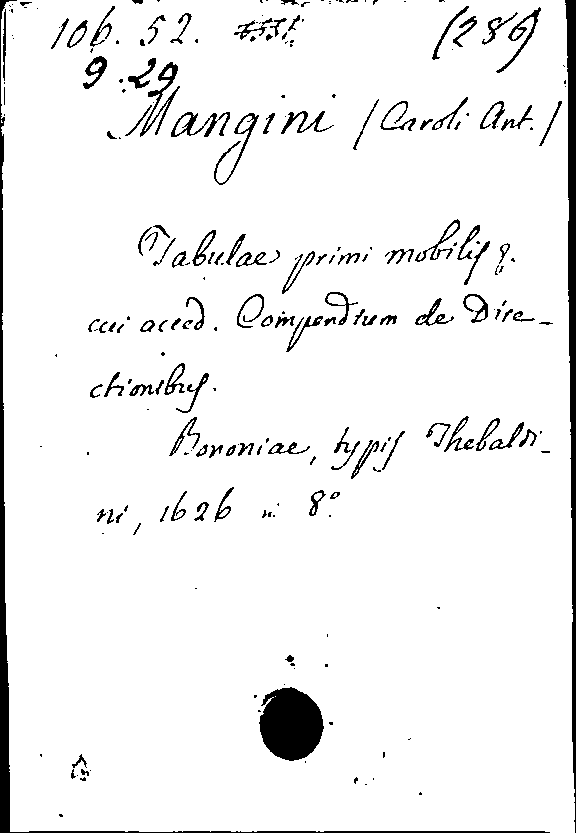 106. 52. (286)
9.29
Mangini / Caroli Ant. /
Tabulae primi mobilis
cui acced. Compendium de Dire-
ctionibus.
Bononiae, typis Thebaldi-
ni, 1626 in 8°